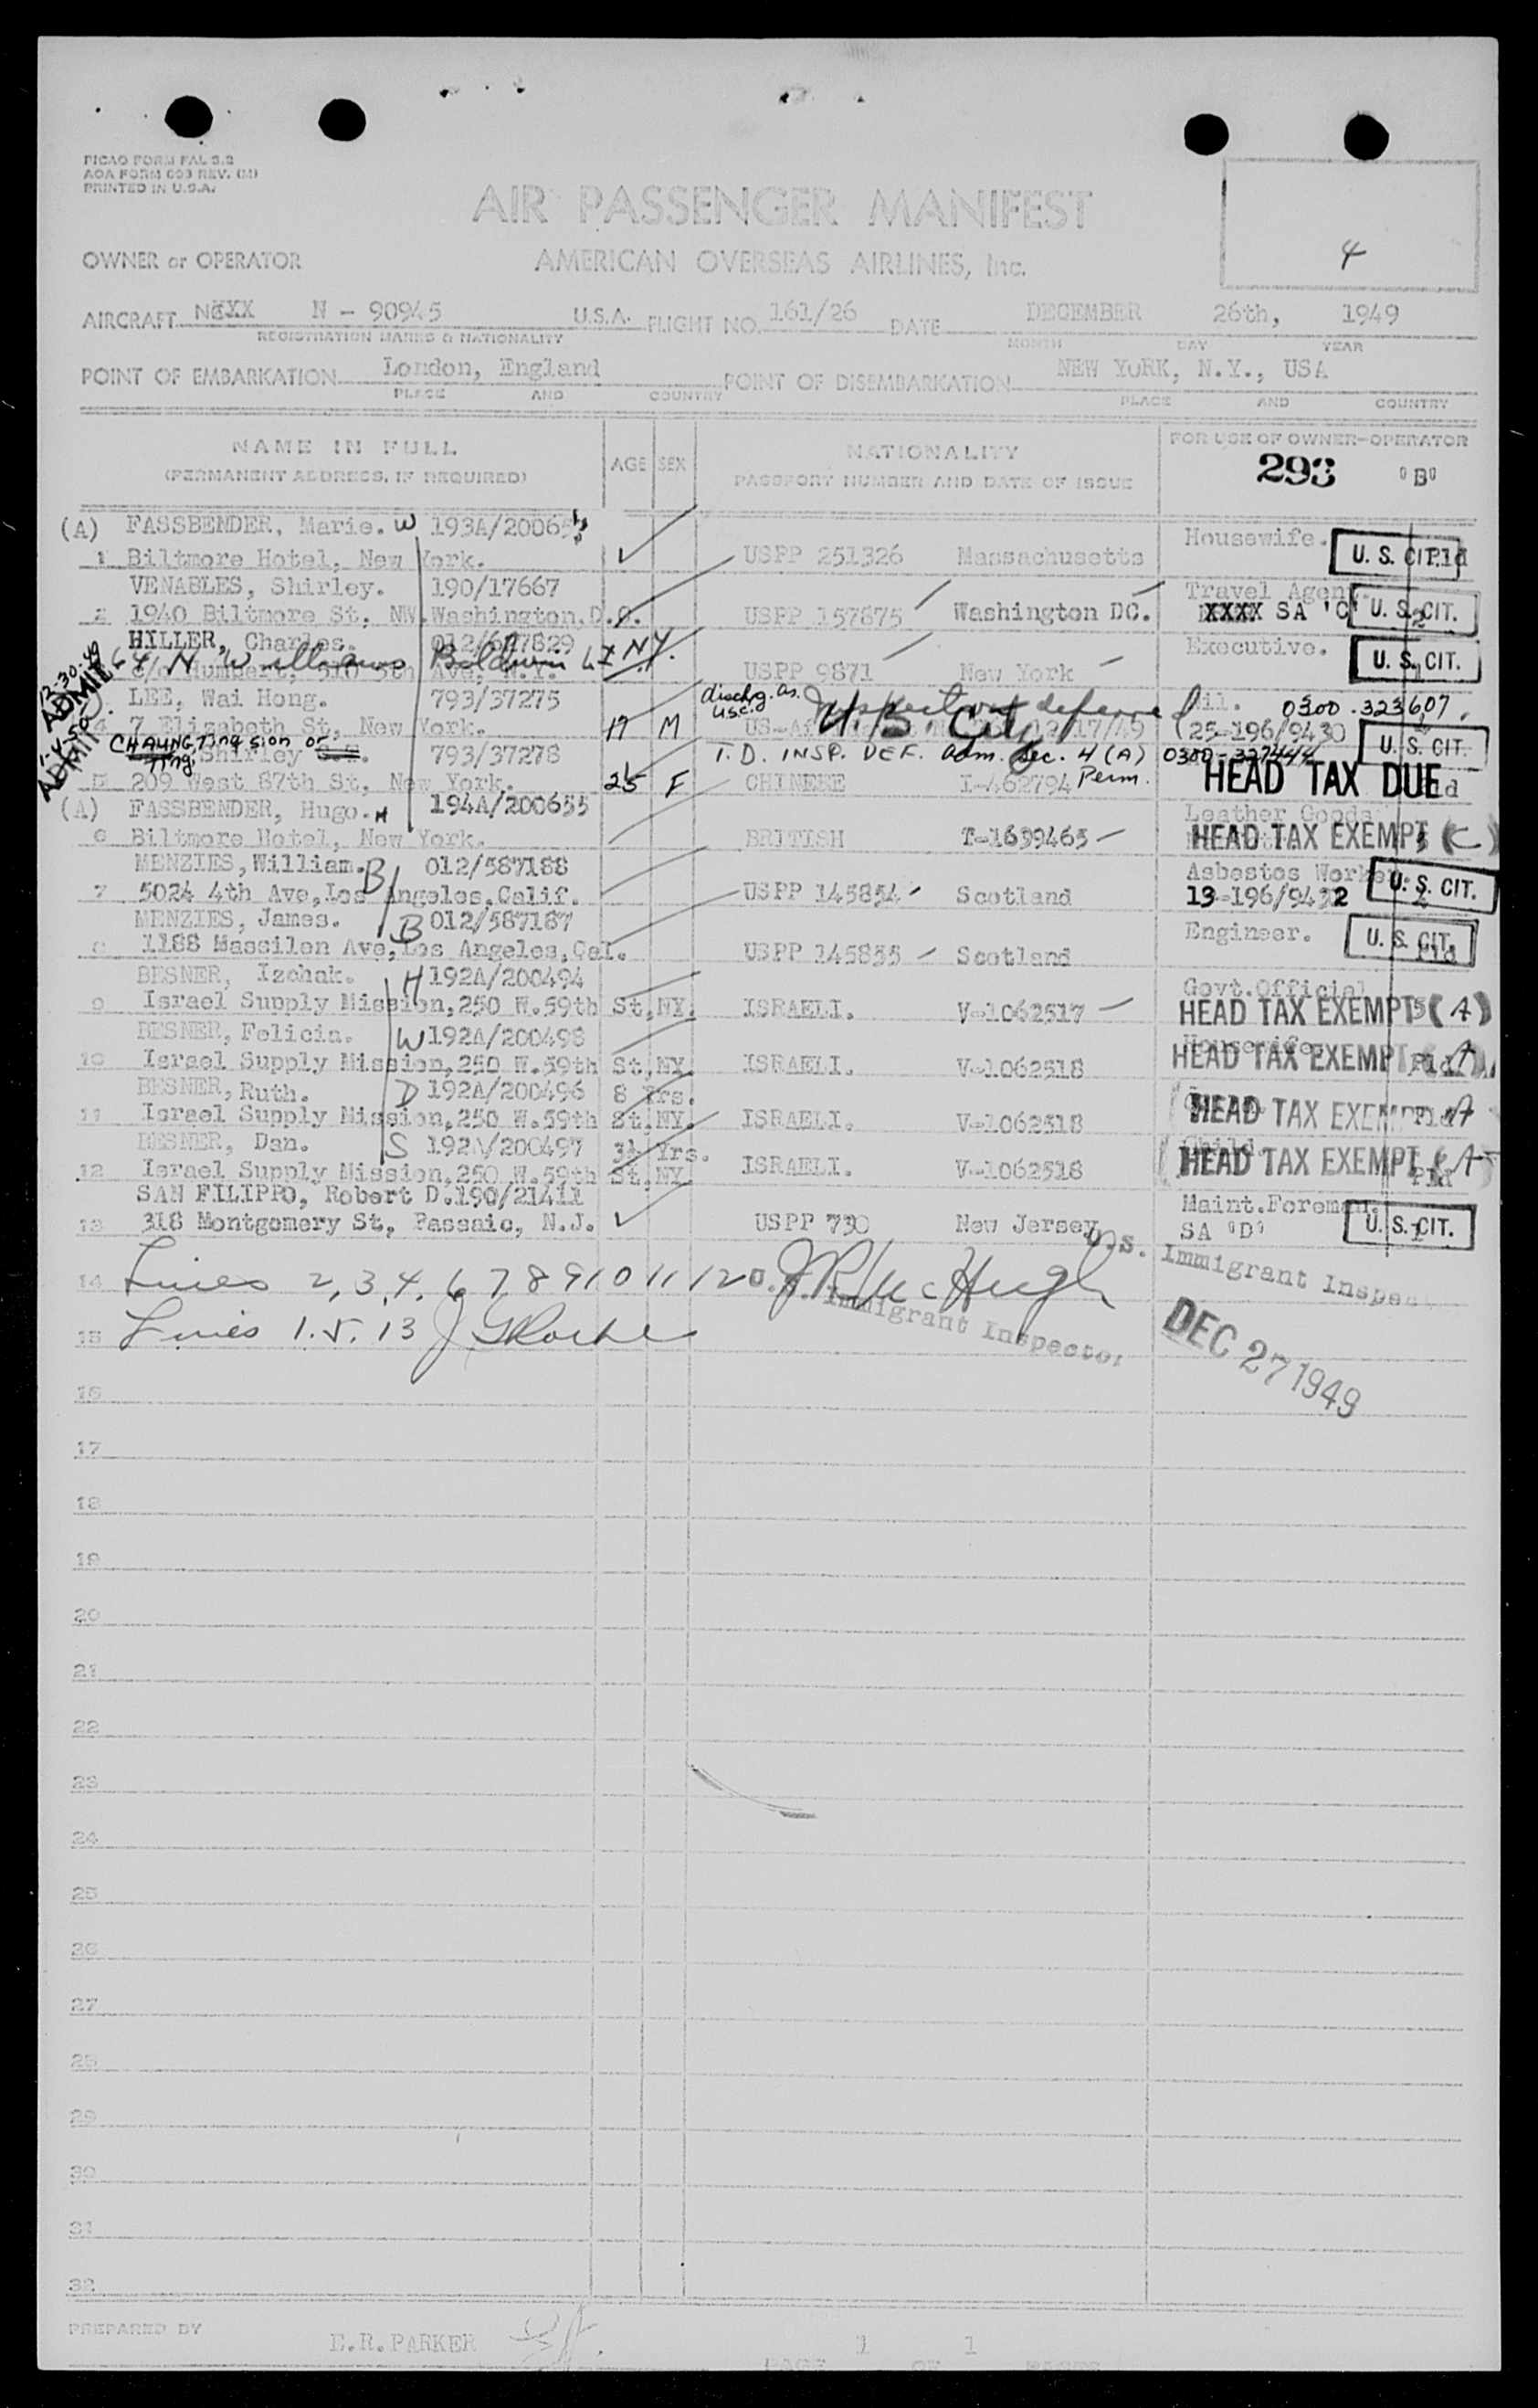 PICAO FORM FAL 3.2
AOA FORM 603 REV. (M)
PRINTED IN U.S.A.
AIR PASSENGER MANIFEST
4
OWNER or OPERATOR AMERICAN OVERSEAS AIRLINES, Inc.
AIRCRAFT NCXX N - 90945 U.S.A. FLIGHT NO. 161/26 DATE DECEMBER 26th, 1949
REGISTRATION MARKS & NATIONALITY MONTH DAY YEAR
POINT OF EMBARKATION London, England POINT OF DISEMBARKATION NEW YORK, N.Y., USA
PLACE AND COUNTRY PLACE AND COUNTRY
NAME IN FULL AGE SEX NATIONALITY FOR USE OF OWNER-OPERATOR
(PERMANENT ADDRESS, IF REQUIRED) PASSPORT NUMBER AND DATE OF ISSUE 293 "B"
(A) FASSBENDER, Marie. W 193A/20065 Housewife.
1 Biltmore Hotel, New York. USPP 251326 Massachusetts U.S. CIT.
VENABLES, Shirley. 190/17667 Travel Agent.
2 1940 Biltmore St, NW. Washington, D.C. USPP 157875 Washington DC. XXXX SA 'C' U.S. CIT.
HILLER, Charles. 012/6 7829 Executive.
64 N Baldwin LI N.Y.
c/o Humbert, 510 5th Ave, N.Y. USPP 9871 New York U.S. CIT.
12-30-49 ADMIT
LEE, Wai Hong. 793/37275 dischg. as. U.S.C. Inspection deferred Nil. 0300-323607
4 7 Elizabeth St, New York. 17 M U.S. Cit. 12/17/49 25-196/9430 U.S. CIT.
1-4-50 ADMIT
CHAUNG, Ting sion or Shirley Ting 793/37278 T.D. INSP. DEF. adm. Sec. 4 (A) Perm. 0300-327444
5 209 West 87th St, New York. 25 F CHINESE I-462794 HEAD TAX DUE
(A) FASSBENDER, Hugo. H 194A/200655 Leather Goods
6 Biltmore Hotel, New York. BRITISH T-1639465 HEAD TAX EXEMPT (C)
MENZIES, William. B 012/587188 Asbestos Worker.
7 5024 4th Ave, Los Angeles, Calif. USPP 145854 Scotland 13-196/9432 U.S. CIT.
MENZIES, James. B 012/587187 Engineer.
8 1188 Massilon Ave, Los Angeles, Cal. USPP 145855 Scotland U.S. CIT.
BESNER, Izchak. H 192A/200494 Govt. Official
9 Israel Supply Mission, 250 W. 59th St. NY. ISRAELI. V-1062517 HEAD TAX EXEMPT (A)
BESNER, Felicia. W 192A/200498 Housewife.
10 Israel Supply Mission, 250 W. 59th St. NY. ISRAELI. V-1062518 HEAD TAX EXEMPT A
BESNER, Ruth. D 192A/200496 8 Yrs.
11 Israel Supply Mission, 250 W. 59th St. NY. ISRAELI. V-1062518 HEAD TAX EXEMPT A
BESNER, Dan. S 192A/200497 3½ Yrs. Child.
12 Israel Supply Mission, 250 W. 59th St. NY. ISRAELI. V-1062518 HEAD TAX EXEMPT (A)
SAN FILIPPO, Robert D. 190/21411 Maint. Foreman.
13 318 Montgomery St, Passaic, N.J. USPP 730 New Jersey SA 'D' U.S. CIT.
U.S. Immigrant Inspec
14 Lines 2, 3, 4, 6 7 8 9 10 11 12 J R McHugh
Immigrant Inspector
15 Lines 1. 5. 13
DEC 27 1949
16
17
18
19
20
21
22
23
24
25
26
27
28
29
30
31
32
PREPARED BY E.R. PARKER PAGE 1 OF 1 PAGES